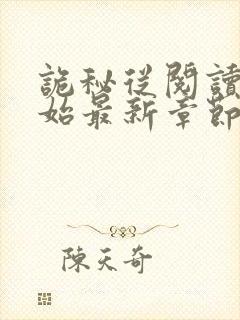 詭秘從閱讀
始最新章節
陳天奇